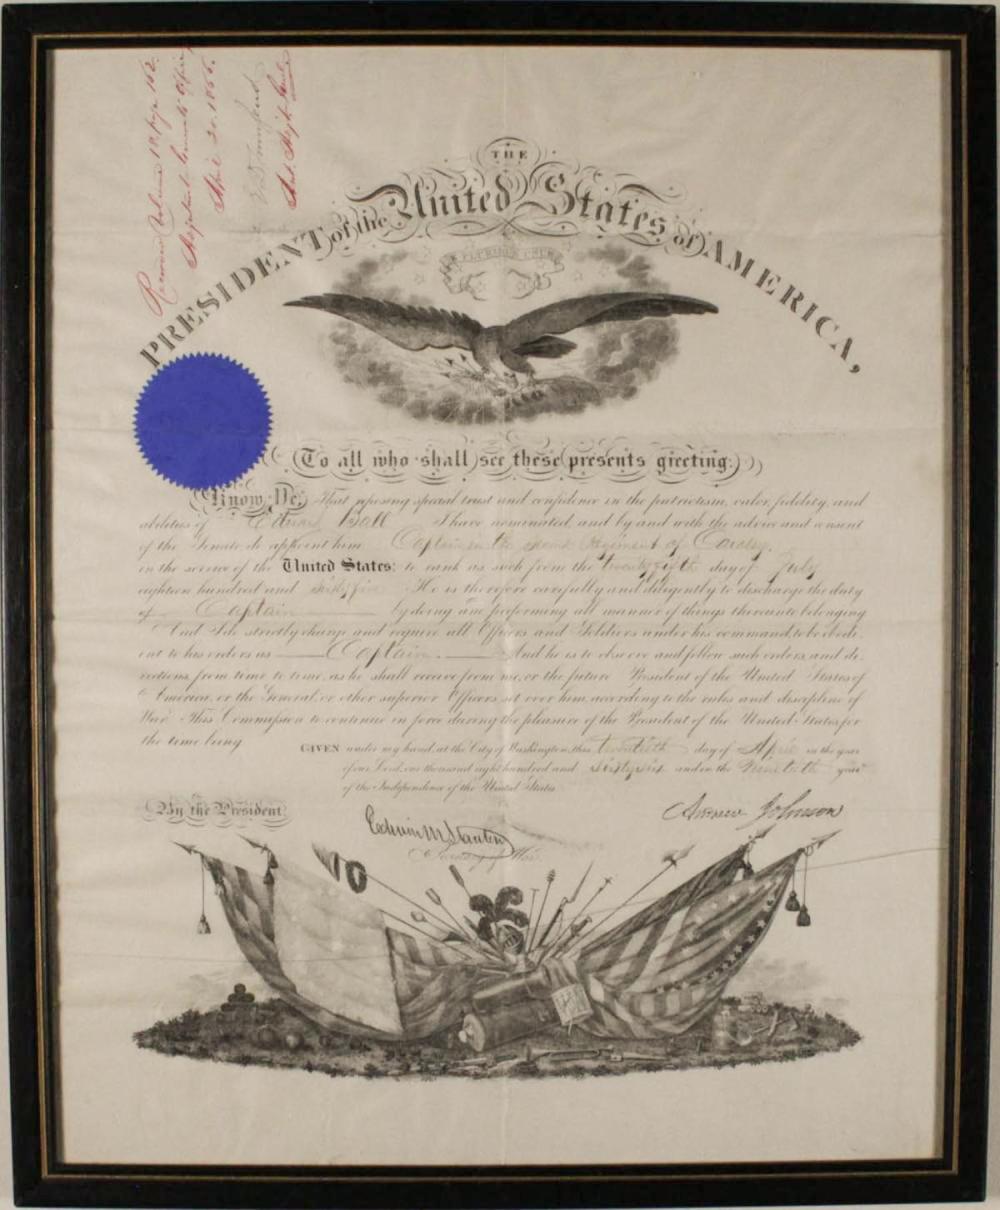 Recorded Volume 10, page 162.
Adjutant General's Office
April 20. 1866.
Asst. Adjt. Genl.
THE
PRESIDENT of the United States of AMERICA,
E PLURIBUS UNUM
To all who shall see these presents greeting:
Know Ye, That reposing special trust and confidence in the patriotism, valor, fidelity, and
abilities of Edward Ball I have nominated, and by and with the advice and consent
of the Senate, do appoint him Captain in the Second Regiment of Cavalry,
in the service of the United States: to rank as such from the twenty fifth day of July
eighteen hundred and sixty five. He is therefore carefully and diligently to discharge the duty
of Captain by doing and performing all manner of things thereunto belonging
And I do strictly charge and require all Officers and Soldiers under his command, to be obedi-
ent to his orders as Captain. And he is to observe and follow such orders, and di-
rections, from time to time, as he shall receive from me, or the future President of the United States of
America, or the General, or other superior Officers set over him, according to the rules and discipline of
War. This Commission to continue in force during the pleasure of the President of the United States, for
the time being.
GIVEN under my hand, at the City of Washington, this twentieth day of April in the year
of our Lord, one thousand eight hundred and sixty six and in the Ninetieth year
of the Independence of the United States.
By the President:
Andrew Johnson
Edwin M Stanton
Secretary of War.